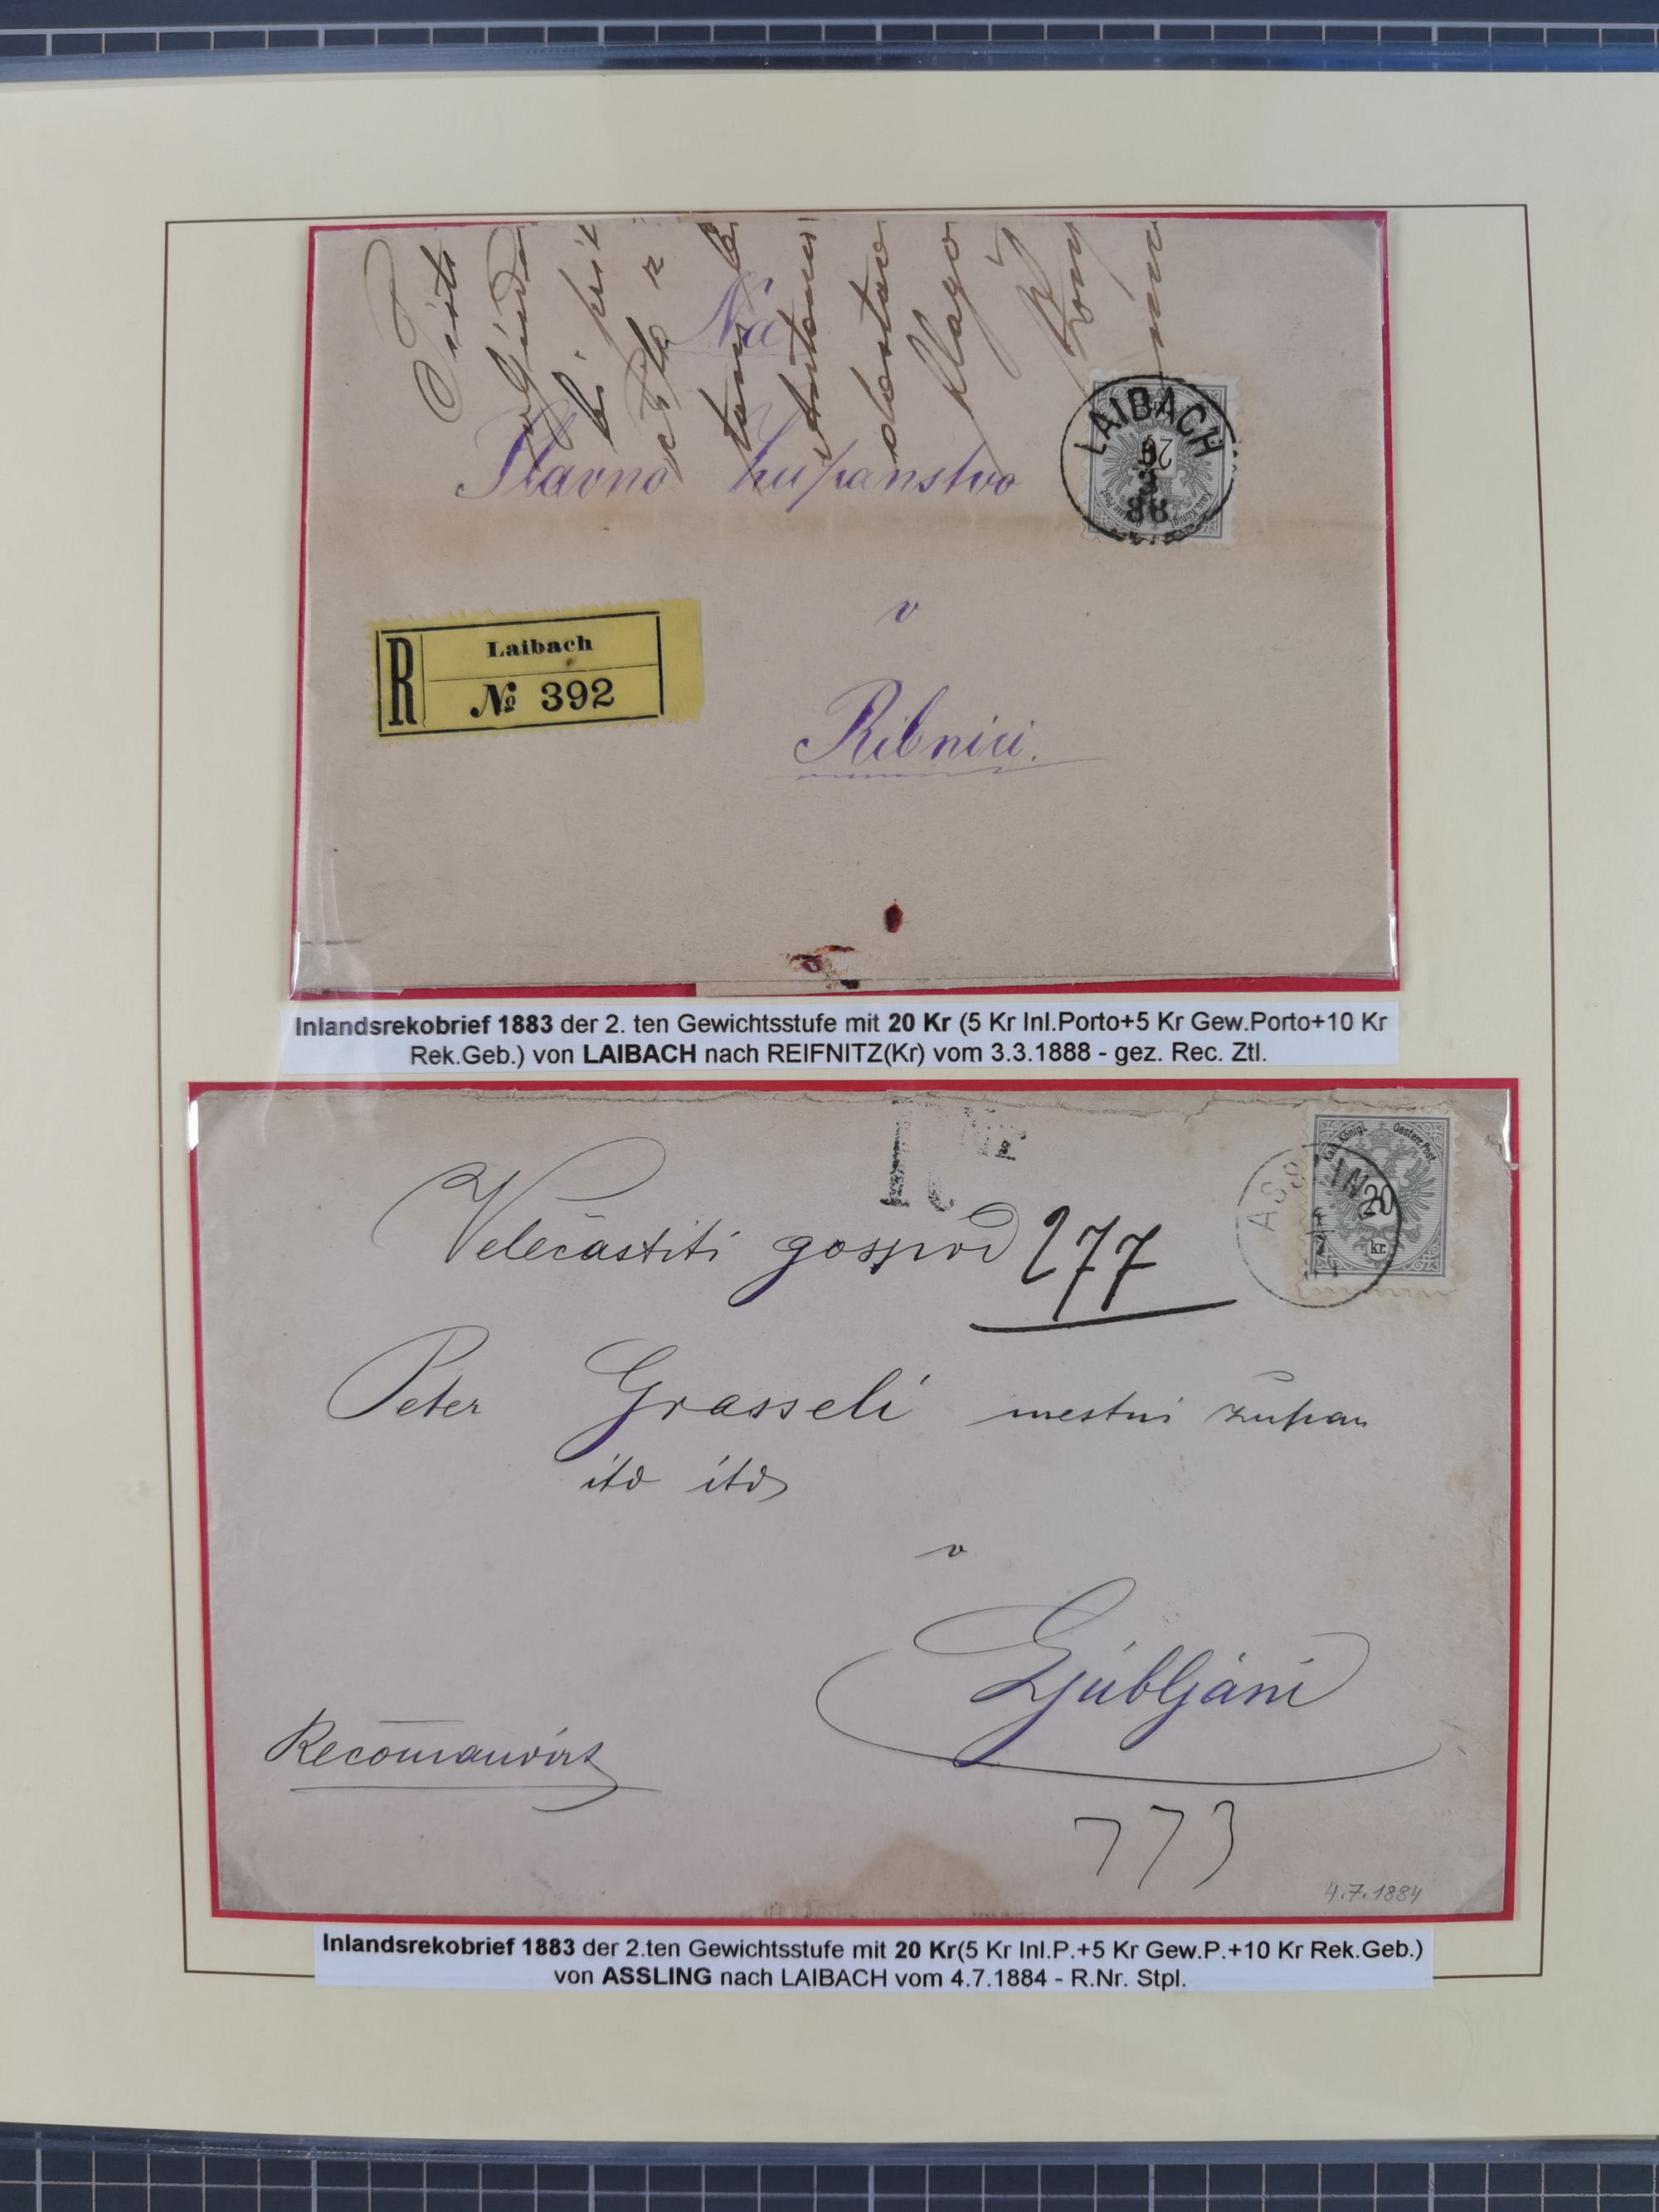 Na
Slavno županstvo
LAIBACH
3
88
v
R
Laibach
№ 392
Ribnici.
Inlandsrekobrief 1883 der 2. ten Gewichtsstufe mit 20 Kr (5 Kr Inl.Porto+5 Kr Gew.Porto+10 Kr
Rek.Geb.) von LAIBACH nach REIFNITZ(Kr) vom 3.3.1888 - gez. Rec. Ztl.
R
Kais.Königl. Oesterr.Post.
20
kr.
Velečastiti gospod 277
Peter Grasseli mestni župan
itd itd
v
Ljubljani
Recomandirt
773
4.7.1884
Inlandsrekobrief 1883 der 2.ten Gewichtsstufe mit 20 Kr(5 Kr Inl.P.+5 Kr Gew.P.+10 Kr Rek.Geb.)
von ASSLING nach LAIBACH vom 4.7.1884 - R.Nr. Stpl.